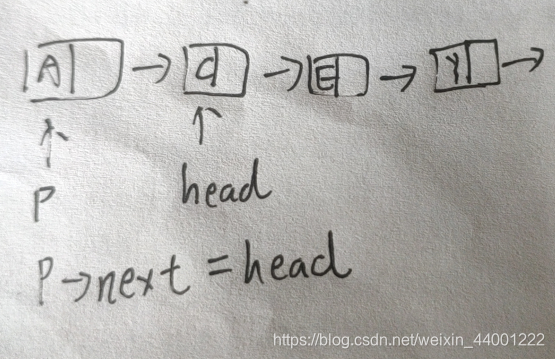 A → C → E → Y →
↑ ↑
P head
P→next = head
https://blog.csdn.net/weixin_44001222